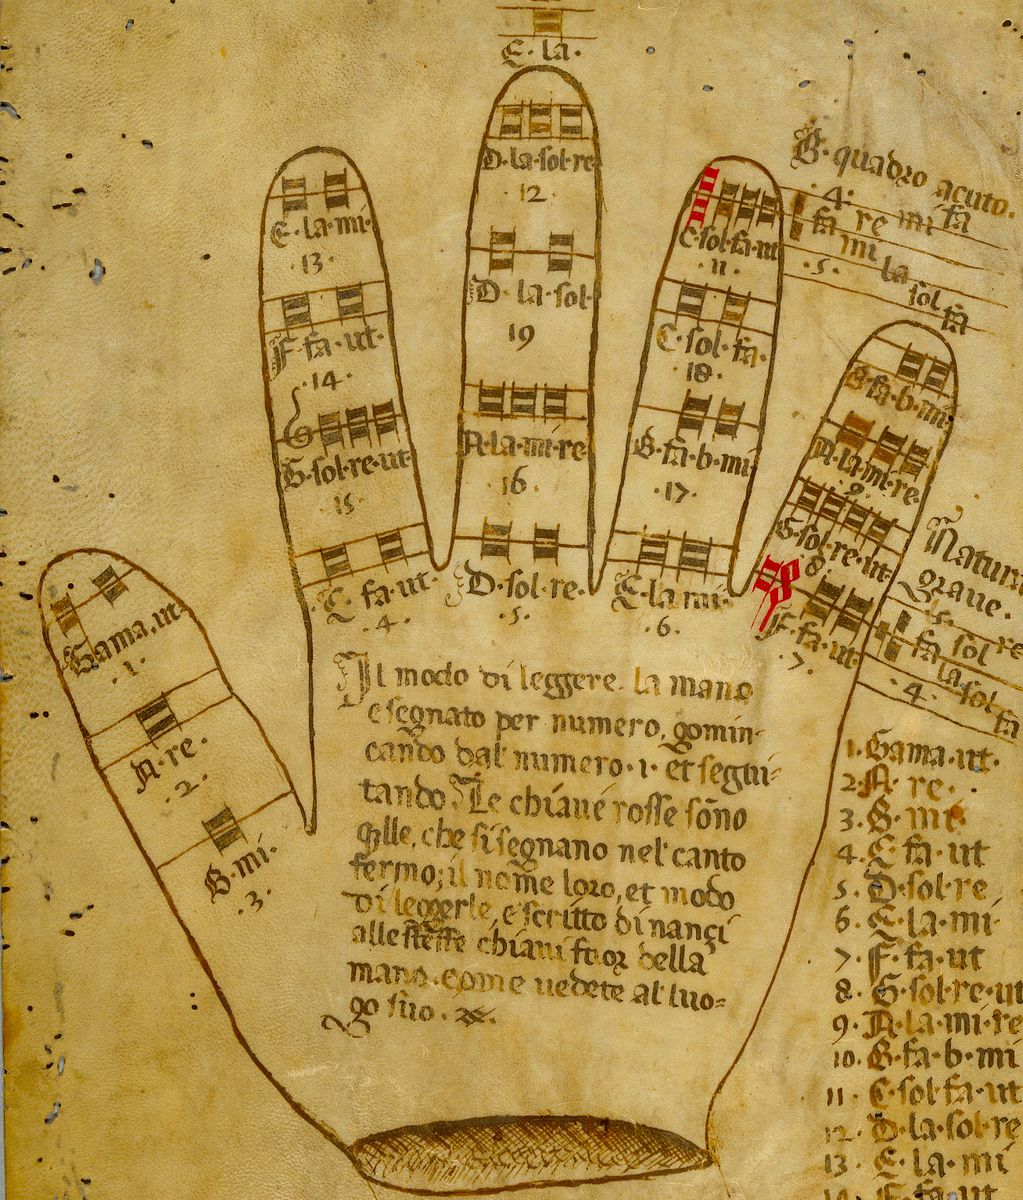 E·la·
D·la·sol·re
·12·
D·la·sol·
19
A·la·mi·re·
·16·
D·sol·re·
·5·
E·la·mi·
·13·
F·fa·ut·
·14·
G·sol·re·ut·
·15·
C·fa·ut·
·4·
C·sol·fa·ut
·11·
C·sol·fa·
·18·
B·fa·b·mi·
·17·
E·la·mi·
·6·
B·quadro acuto·
·4·
fa re mi fa
fa mi la sol fa
·5·
B·fa·b·mi·
A·la·mi·re·
·9·
G·sol·re·ut·
8
F·fa·ut·
·7·
Natura
grave·
·5·
fa sol re
fa la sol fa
·4·
Gama·ut·
·1·
A·re·
·2·
B·mi·
·3·
Il modo di leggere la mano
e segnato per numero, gomin-
cando dal numero·1·et segui-
tando. Le chiave rosse sono
qlle, che si segnano nel canto
fermo; il nome loro, et modo
di leggerle, e scritto di nançi
alle stesse chiavi fuor della
mano, come vedete al luo=
go suo·
1·Gama·ut·
2·A·re·
3·B·mi·
4·C·fa·ut
5·D·sol·re
6·E·la·mi·
7·F·fa·ut
8·G·sol·re·ut
9·A·la·mi·re
10·B·fa·b·mi
11·C·sol·fa·ut
12·D·la·sol·re
13·E·la·mi
14·F·fa·ut